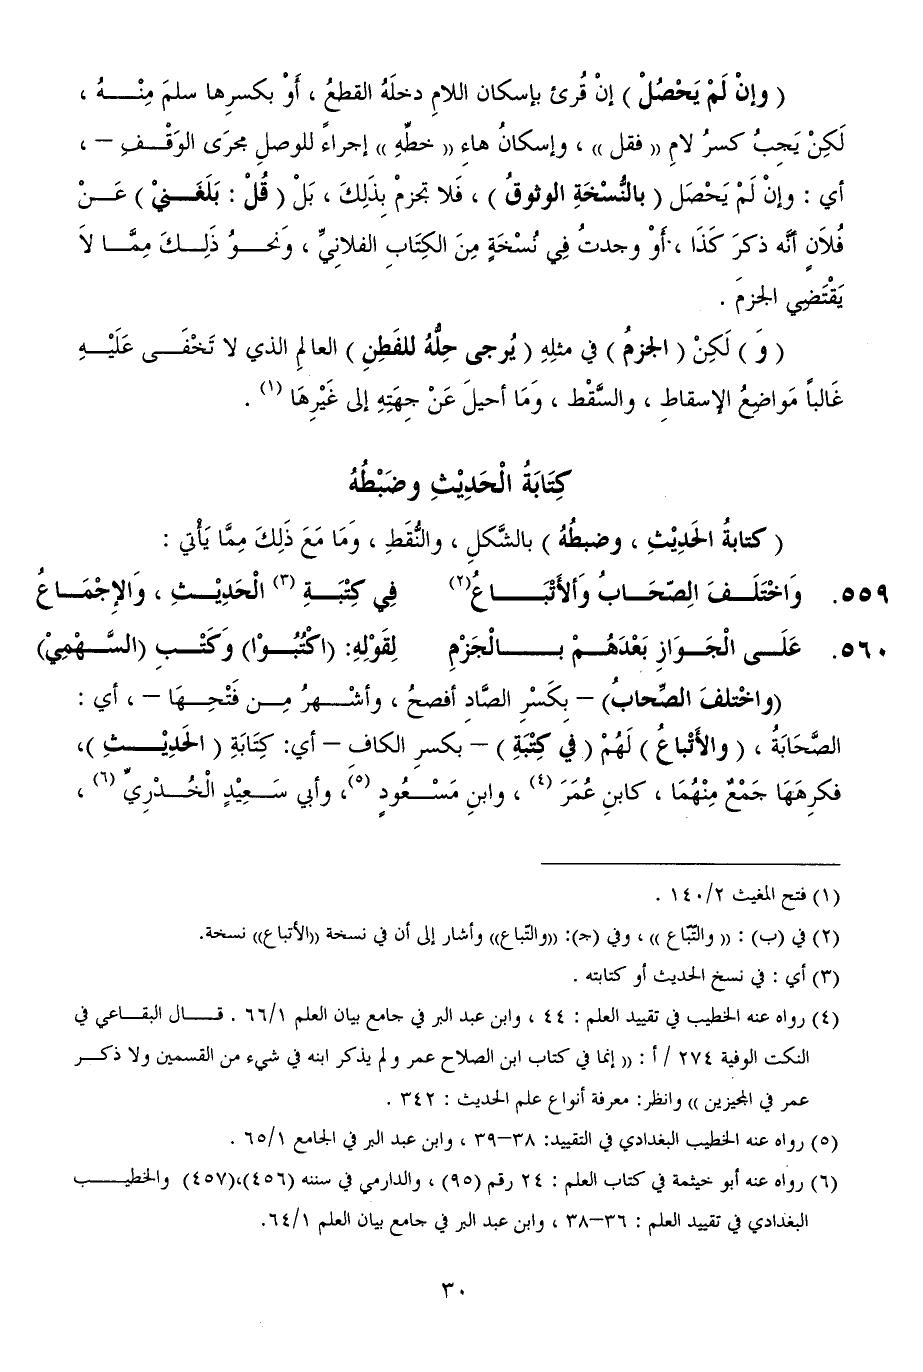 ( وإنْ لَمْ يَحْصُلْ ) إنْ قُرئ بإسكان اللامِ دخلَهُ القطعُ ، أَوْ بكسرِها سلمَ مِنْهُ ،
لَكِنْ يَجبُ كسرُ لامِ (( فقل )) ، وإسكانُ هاءِ (( خطِّهِ )) إجراءً للوصلِ مجرَى الوَقْفِ – ،
أي : وإنْ لَمْ يَحْصَل ( بالنُّسْخَةِ الوثوقُ ) ، فَلا تجزمْ بذَلِكَ ، بَلْ ( قُلْ : بَلَغَنيْ ) عَنْ
فُلاَنٍ أنَّه ذكرَ كَذَا ، أَوْ وجدتُ فِي نُسْخَةٍ مِنَ الكِتَابِ الفلانيِّ ، وَنحوُ ذَلِكَ مِمَّا لاَ
يَقْتَضِي الجزمَ .
( وَ ) لَكِنْ ( الجزمُ ) في مثلِهِ ( يُرجى حِلُّهُ للفَطِنِ ) العالمِ الذي لا تَخْفَى عَلَيْهِ
غَالباً مَواضِعُ الإسقاطِ ، والسَّقْطِ ، وَمَا أحيلَ عَنْ جهَتِهِ إلى غَيْرِهَا (١) .
كِتَابَةُ الْحَدِيْثِ وضَبْطُهُ
( كتابةُ الحَدِيْثِ ، وضبطُهُ ) بالشَّكلِ ، والنُّقَطِ ، وَمَا مَعَ ذَلِكَ مِمَّا يَأْتي :
٥٥٩. وَاخْتَلَفَ الِصّحَابُ وَالأتْبَاعُ(٢) فِي كِتْبَةِ (٣) الْحَدِيْثِ ، وَالإجْمَاعُ
٥٦٠. عَلَى الْجَوَازِ بَعْدَهُمْ بِالْجَزْمِ لِقَوْلِهِ: (اكْتُبُوْا) وَكَتْبِ (السَّهْمِيْ)
(واخْتلفَ الصِّحابُ) – بكَسْرِ الصَّادِ أفصحُ ، وأشْهرُ مِن فَتْحِهَا – ، أي :
الصَّحَابَةُ ، ( والأَتْباعُ ) لَهُمْ ( في كِتْبَةِ ) – بكسرِ الكاف – أي: كِتَابَةِ ( الحَدِيْثِ )،
فكرِهَهَا جَمْعٌ مِنْهُمَا ، كابنِ عُمَرَ (٤) ، وابنِ مَسْعُودٍ (٥)، وأبي سَعِيْدٍ الْخُدْرِيِّ (٦) ،
(١) فتح المغيث ١٤٠/٢ .
(٢) في (ب) : (( والتُبّاع )) ، وفي (جـ): ((والتّباع)) وأشار إلى أن في نسخة ((الأتباع)) نسخة.
(٣) أي : في نسخ الحديث أو كتابته .
(٤) رواه عنه الخطيب في تقييد العلم : ٤٤ ، وابن عبد البر في جامع بيان العلم ٦٦/١ . قال البقاعي في
النكت الوفية ٢٧٤ / أ : (( إنما في كتاب ابن الصلاح عمر ولم يذكر ابنه في شيء من القسمين ولا ذكر
عمر في المجيزين )) وانظر: معرفة أنواع علم الحديث : ٣٤٢ .
(٥) رواه عنه الخطيب البغدادي في التقييد: ٣٨–٣٩ ، وابن عبد البر في الجامع ٦٥/١ .
(٦) رواه عنه أبو خيثمة في كتاب العلم : ٢٤ رقم (٩٥) ، والدارمي في سننه (٤٥٦)،(٤٥٧) والخطيب
البغدادي في تقييد العلم : ٣٦–٣٨ ، وابن عبد البر في جامع بيان العلم ٦٤/١.
٣٠